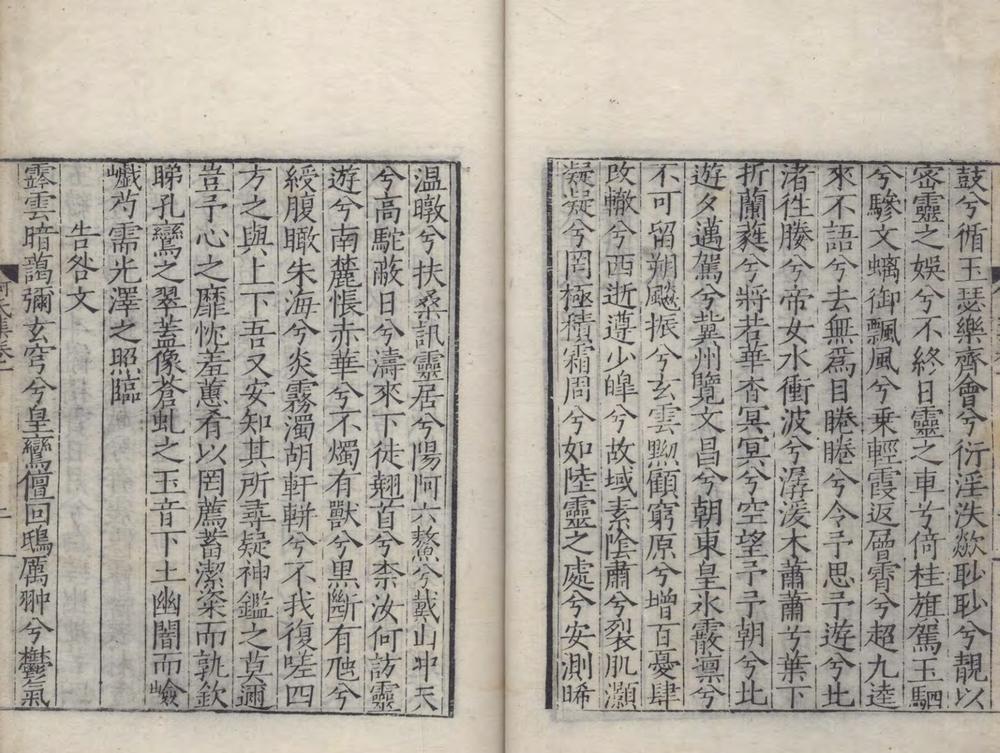 鼓兮循玉瑟樂齊會兮衍淫泆歘眇眇兮靚以
宻靈之娛兮不終日靈之車兮倚桂旗駕玉駟
兮驂文螭御飄風兮乗輕霞返層霄兮超九逵
來不語兮去無爲目睠睠兮令予思予遊兮北
渚徃媵兮帝女水衝波兮潺湲木蕭蕭兮葉下
折蘭蕤兮將若華杳冥冥兮空望予予朝兮北
遊夕邁駕兮兾州覽文昌兮朝東皇氷霰凛兮
不可留朔飈振兮玄雲黝顧窮原兮增百憂肆
改轍兮西逝遵少皥兮故域素陰肅兮裂肌灝
凝凝兮罔極積霜周兮如陸靈之處兮安測晞
温暾兮扶桑訊靈居兮陽阿六鰲兮戴山冲天
兮高駝蔽日兮濤來下徒翹首兮柰汝何訪靈
遊兮南麓悵赤華兮不燭有獸兮黒斷有虺兮
綬腹瞰朱海兮炎霧濁胡軒輧兮不我復嗟四
方之與上下吾又安知其所尋疑神鑑之莫邇
豈予心之靡忱羞蕙肴以罔薦蓄潔粢而孰欽
睇孔鸞之翠葢像蒼虬之玉音下土幽闇而嶮
巇芍需光澤之照臨
告咎文
霧雲暗藹彌玄穹兮皇鸞儃回鴟厲翀兮欝氣